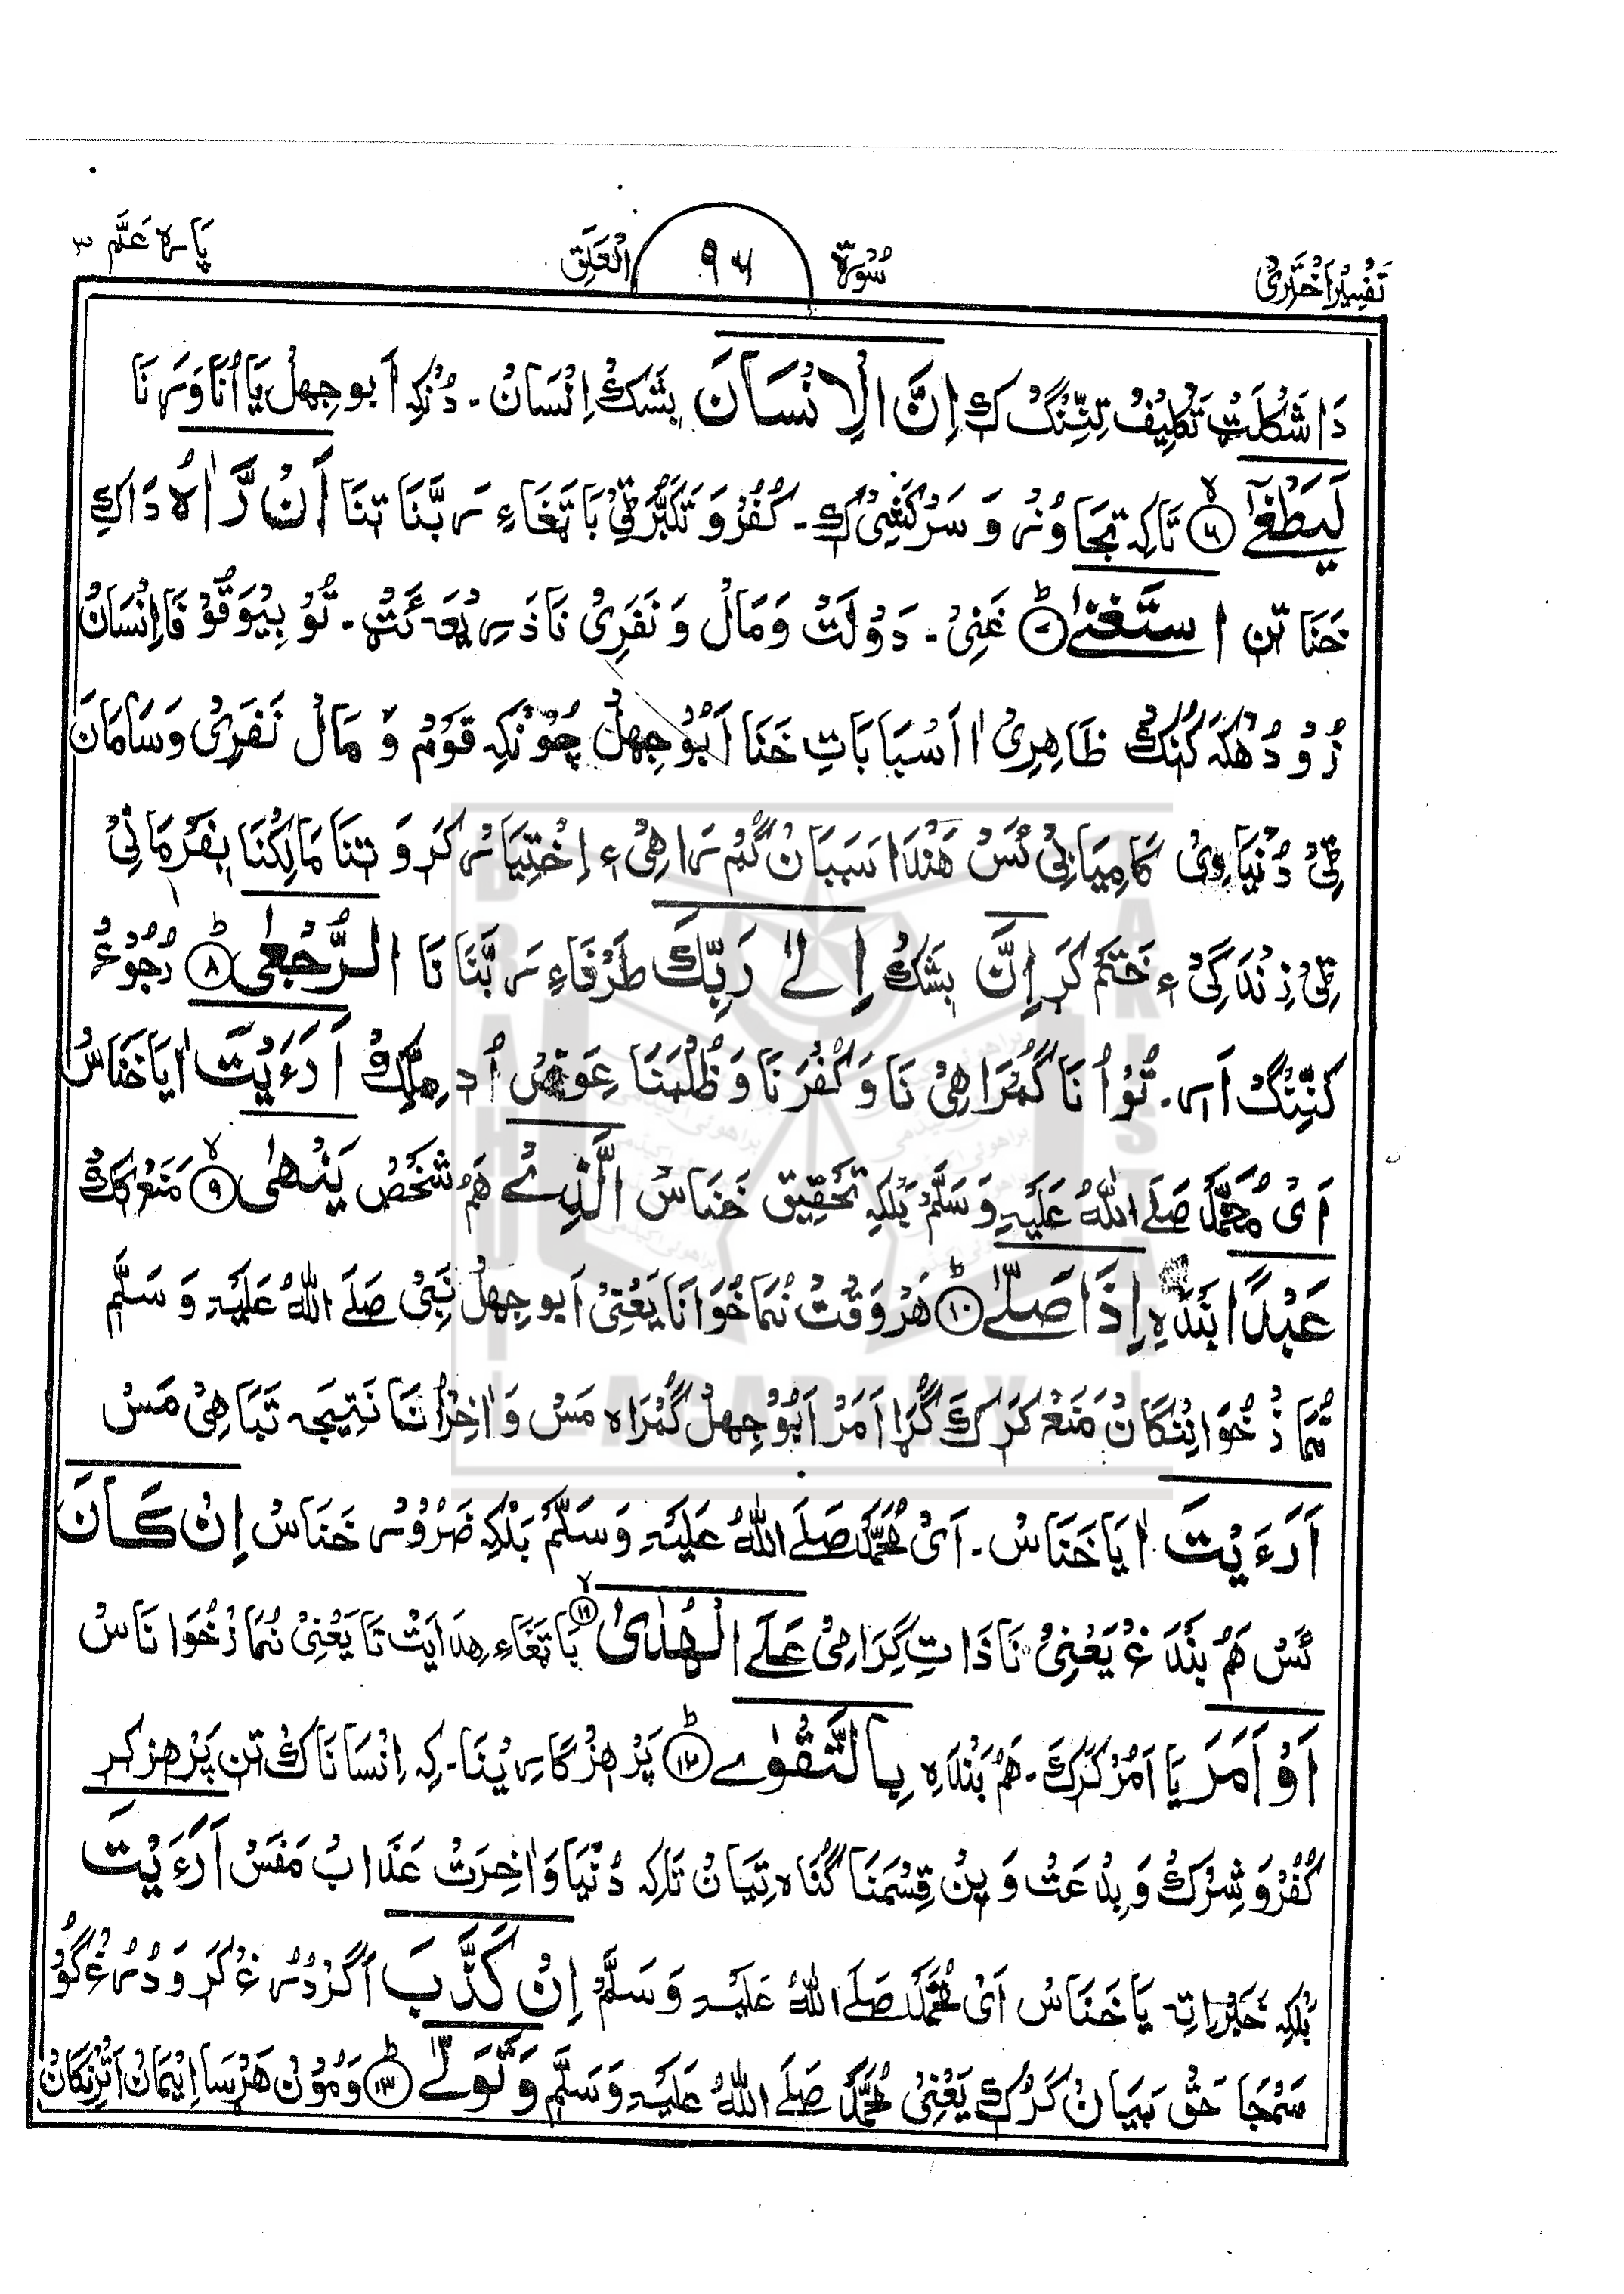 تَفْسِیْرِ اَخْتَرِیْ سُوْرَۃُ ۹۶ الْعَلَقِ پَارَہ عَمَّ ۳۰
دَا شَکْلَٹ تَکْلِیْفْ تِنِّنْگْ ک اِنَّ الْاِنْسَانَ بِشَکْ اِنْسَانْ۔ دُنْکِہ اَبُو جِہلْ یَا اُنَا وَڑنَا
لَیَطْغٰۤی ۶ تَاکِہ تَجَاوُزْ وَ سَرْکَشِیْ ک۔ کُفْرْ وَ تَکَبُّرْ ٹِیْ بَاتَغَاءِ رَبَّنَا تِنَا اَنْ رَّاٰہُ دَاکِ
خَنَا تِن اسْتَغْنٰی ۷ غَنِیْ۔ دَوْلَتْ وَمَالْ وَ نَفَرِیْ نَا ذَرِیْعَہ ئَٹْ۔ تَوْ بِیُوَقُوْفَا اِنْسَانْ
زُوْ دُھْکَہ کُنِکْ ظَاہِرِیْ ا اَسْبَابَاتِ خَنَا اَبُوْ جِہلْ چُوْنْکِہ قَوْمْ وَ مَالْ نَفَرِیْ وَ سَامَانَ
ٹِیْ دُنْیَاوِیْ کَامِیَابِیْ ئَسْ ھَنْدَا سَبَبَانْ گُمْرَاھِیْ ءِ اِخْتِیَارْ کَرْ وَ تِنَا مَالِکْنَا بِفَرْمَانِیْ
ٹِیْ زِنْدَگِیْ ءِ خَتَمْ کَرْ اِنَّ بِشَکْ اِلٰی رَبِّکَ طَرْفَاءِ رَبَّنَا نَا الرُّجْعٰی ۸ رُجُوْعْ
کَنِّنْگْ اَرِ۔ تَوْ اُنَا گُمْرَاھِیْ نَا وَ کُفْرَنَا وَ ظُلْمَنَا عِوَضْ اُدِ مِلِّکْ اَرَءَیْتَ اٰیَا خَنَاسْ
اَیْ مُحَمَّدْ صَلَی اللہُ عَلَیْہِ وَسَلَّمْ بَلْکِہ تَحْقِیْق خَنَاسْ الَّذِیْ ھَمْ شَخْصْ یَنْھٰی ۹ مَنَعْ کَکْ
عَبْدًا بَنْدَہِ اِذَا صَلّٰی ۱۰ ھَرْ وَقْتْ نُمَا خُوَانَا یَعْنِیْ اَبُو جِہلْ نَبِیْ صَلَی اللہُ عَلَیْہِ وَ سَلَّمْ
نُمَازْ خُوَانِنْگَانْ مَنَعْ کَرْکَ گُڑَا اَمَرْ اَبُوْ جِہلْ گُمْرَاہ مَسْ وَ اٰخِرْ اُنَا نَتِیْجَہ تَبَاھِیْ مَسْ
اَرَءَیْتَ اٰیَا خَنَاسْ۔ اَیْ مُحَمَّدْ صَلَی اللہُ عَلَیْہِ وَ سَلَّمْ بَلْکِہ ضَرُوْرْ خَنَاسْ اِنْ کَانَ
ئَسْ ھَمْ بَنْدَغْ یَعْنِیْ نَا ذَاتِ گِرَامِیْ عَلَی الْھُدٰی ۱۱ بَاتَغَاءِ ھِدَایَتْ نَا یَعْنِیْ نُمَازْ خُوَانَاسْ
اَوْ اَمَرَ یَا اَمْرْ کَرَکَ۔ ھَمْ بَنْدَہِ بِالتَّقْوٰی ۱۲ پَرْھِزْگَارِیْنَا۔ کِہ اِنْسَانَاکْ تِن پَرْھِزْ کِر
کُفْرْ وَ شِرْکْ وَ بِدْعَتْ وَ پِن قِسْمَنَا گُنَاہ تِیَانْ تَاکِہ دُنْیَا وَ اٰخِرَتْ عَذَابْ مَفَسْ اَرَءَیْتَ
بَلْکِہ خَبَرْاِتِ یَا خَنَاسْ اَیْ مُحَمَّدْ صَلَی اللہُ عَلَیْہِ وَ سَلَّمْ اِنْ کَذَّبَ اَگَرْ دُرْغْ کَرْ وَ دُرْغْ گُوْ
سَمْجَا حَقْ بَیَانْ کَرُکْ یَعْنِیْ مُحَمَّدْ صَلَی اللہُ عَلَیْہِ وَسَلَّمْ وَتَوَلّٰی ۱۳ وَ مُوْنْ ھَرْسَا اِیْمَانْ اَتِّنِگَانْ
BRAHUI
ACADEMY